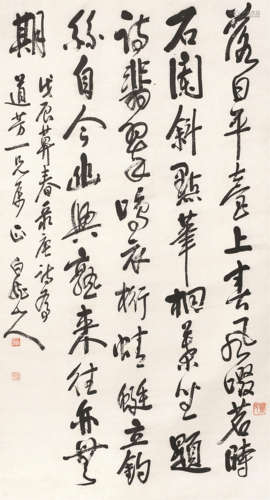 落日平臺上春風啜茗時
石闌斜點筆桐葉坐題
詩翡翠鳴衣桁蜻蜓立釣
絲自今幽興熟來往亦無
期
戊辰莫春录唐詩為
道芳一兄屬正 白龍山人